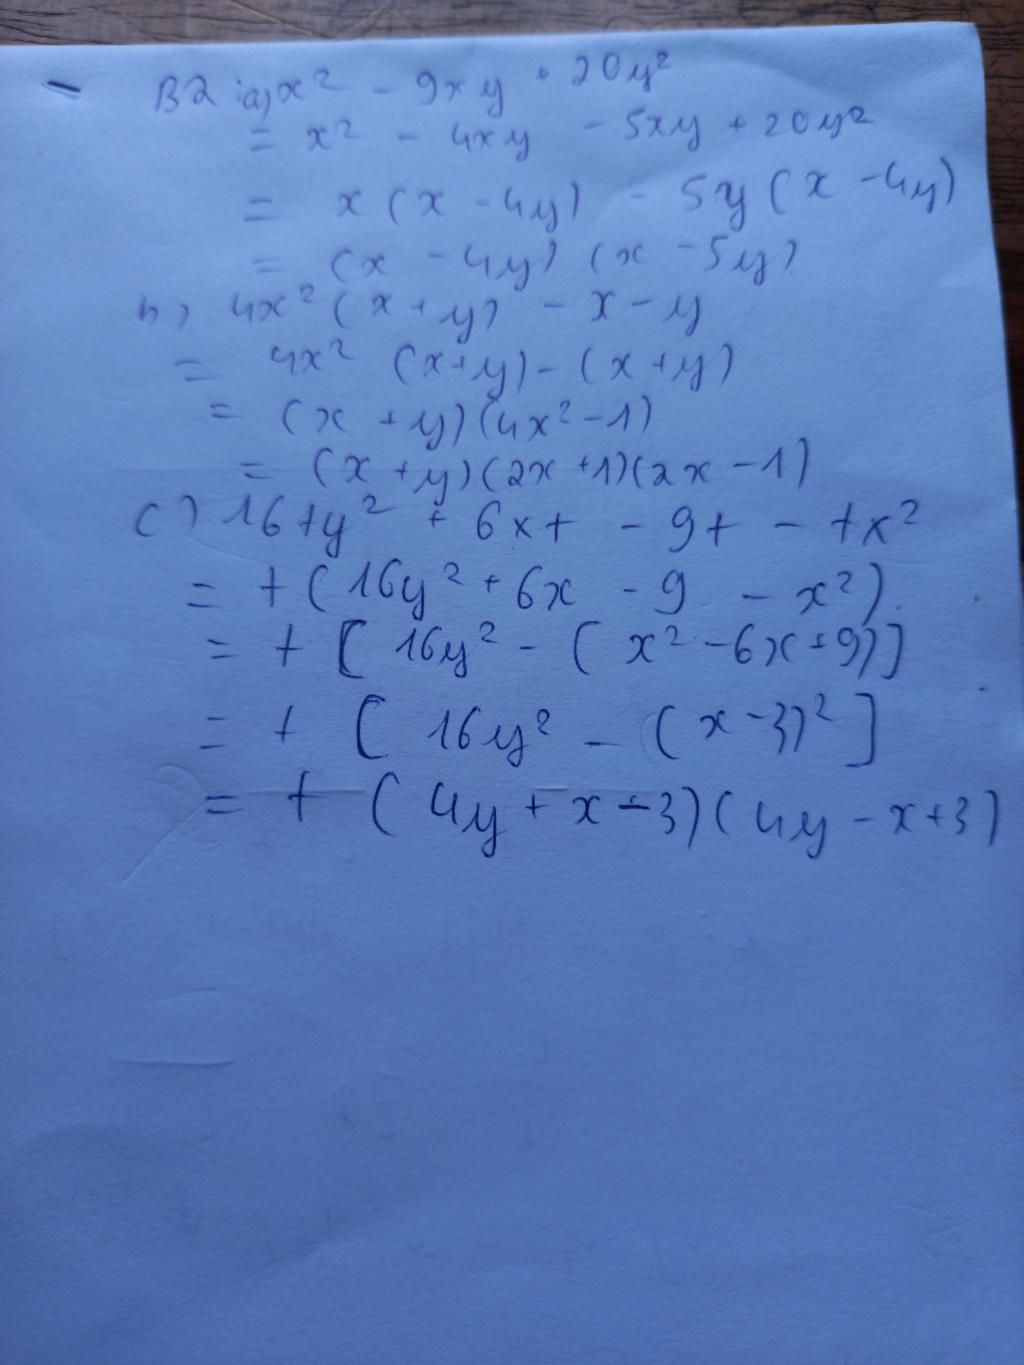 B2: a) x² - 9xy + 20y²
= x² - 4xy - 5xy + 20y²
= x(x - 4y) - 5y(x - 4y)
= (x - 4y)(x - 5y)
b) 4x²(x + y) - x - y
= 4x² (x + y) - (x + y)
= (x + y)(4x² - 1)
= (x + y)(2x + 1)(2x - 1)
c) 16ty² + 6xt - 9t - tx²
= t(16y² + 6x - 9 - x²)
= t[16y² - (x² - 6x + 9)]
= t[16y² - (x - 3)²]
= t(4y + x - 3)(4y - x + 3)